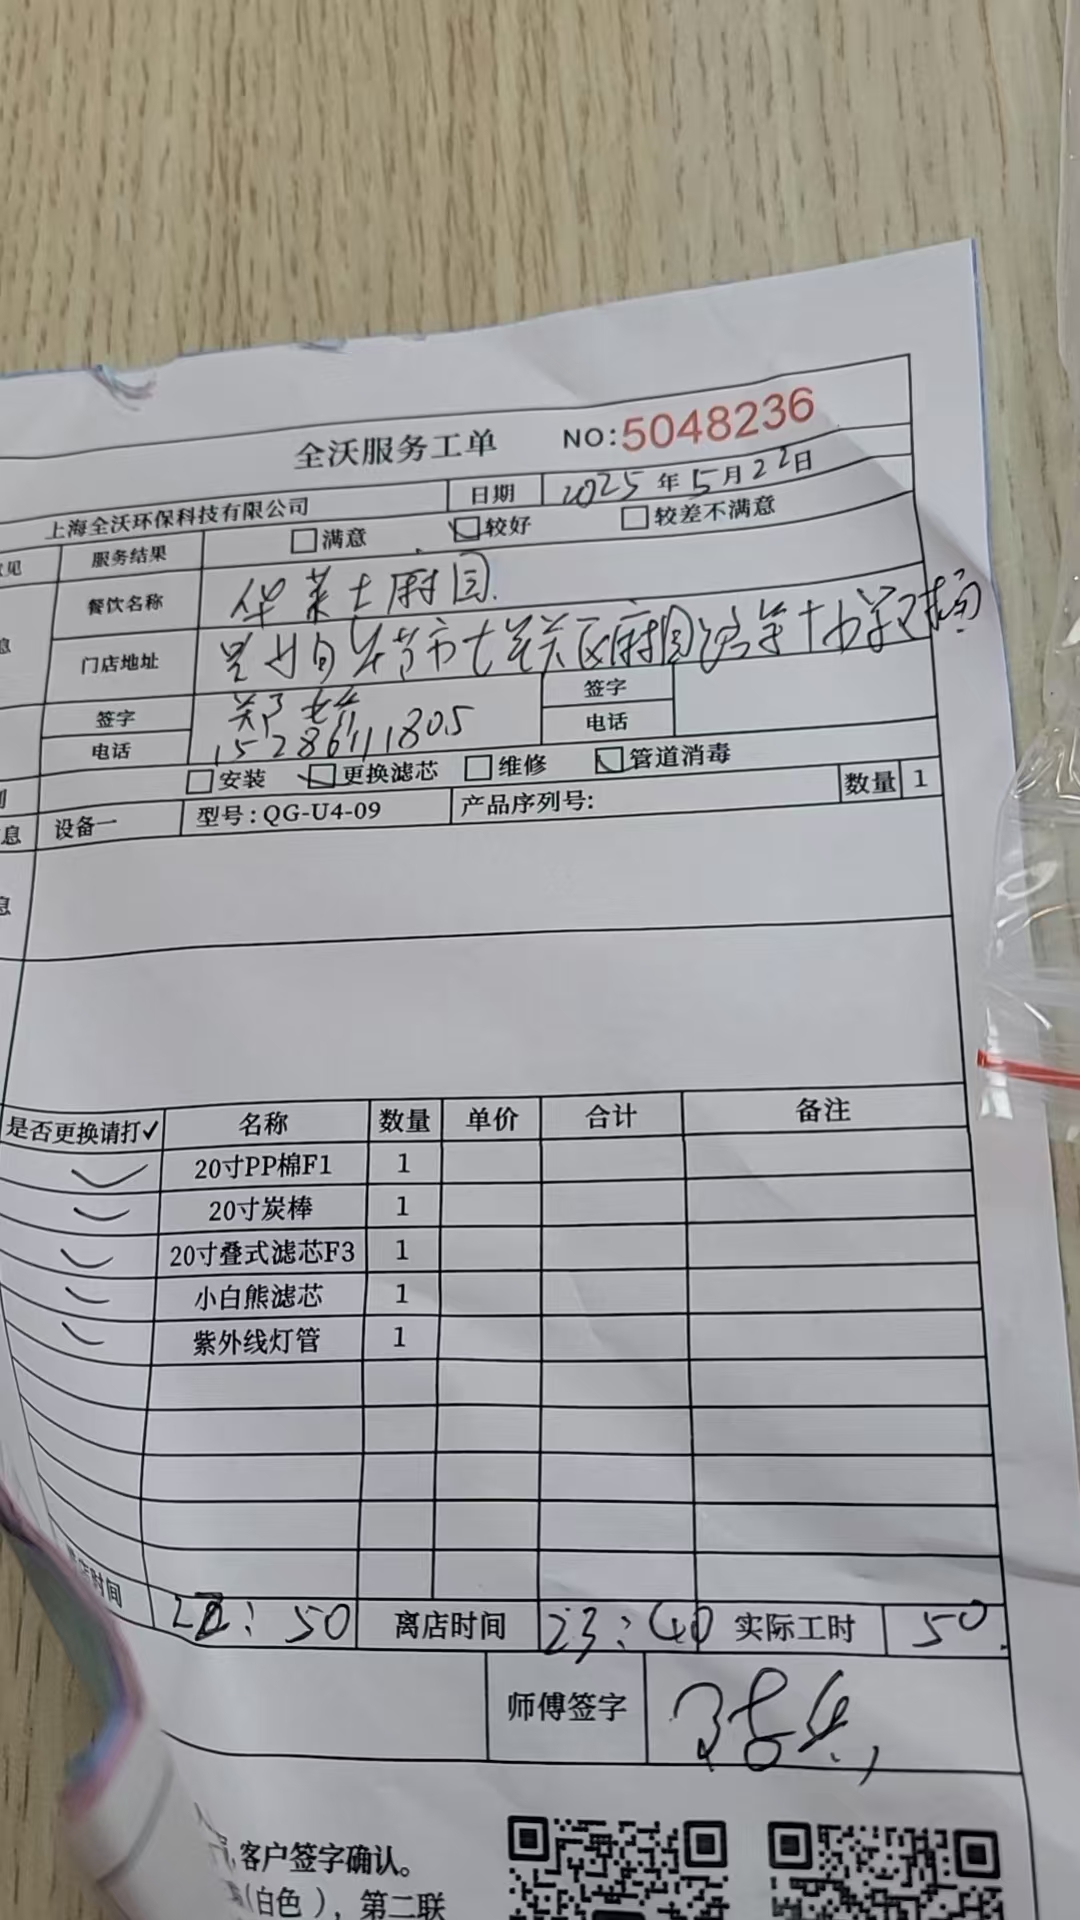 全沃服务工单 NO:5048236
上海全沃环保科技有限公司 日期 2025年5月22日
见 服务结果 满意 较好 较差不满意
餐饮名称 华莱士麻园
息 门店地址 毕节市七星关区麻园
签字 签字
电话 15286111805 电话
安装 更换滤芯 维修 管道消毒
息 设备一 型号:QG-U4-09 产品序列号: 数量 1
息
是否更换请打✓ 名称 数量 单价 合计 备注
✓ 20寸PP棉F1 1
✓ 20寸炭棒 1
✓ 20寸叠式滤芯F3 1
✓ 小白熊滤芯 1
✓ 紫外线灯管 1
店时间 22:50 离店时间 23:40 实际工时 50
师傅签字
,客户签字确认。
(白色),第二联